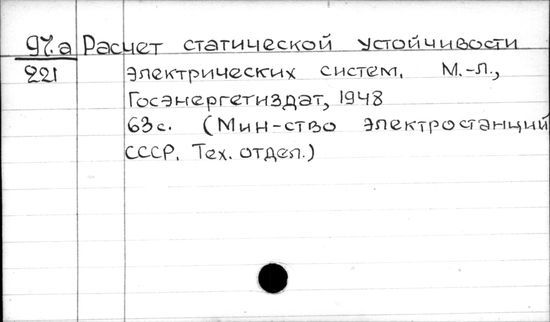 97.а Расчет статической устойчивости
221 электрических систем. М.-Л.,
Госэнергетиздат, 1948
63с. (Мин-ство электростанций
СССР. Тех. отдел.)